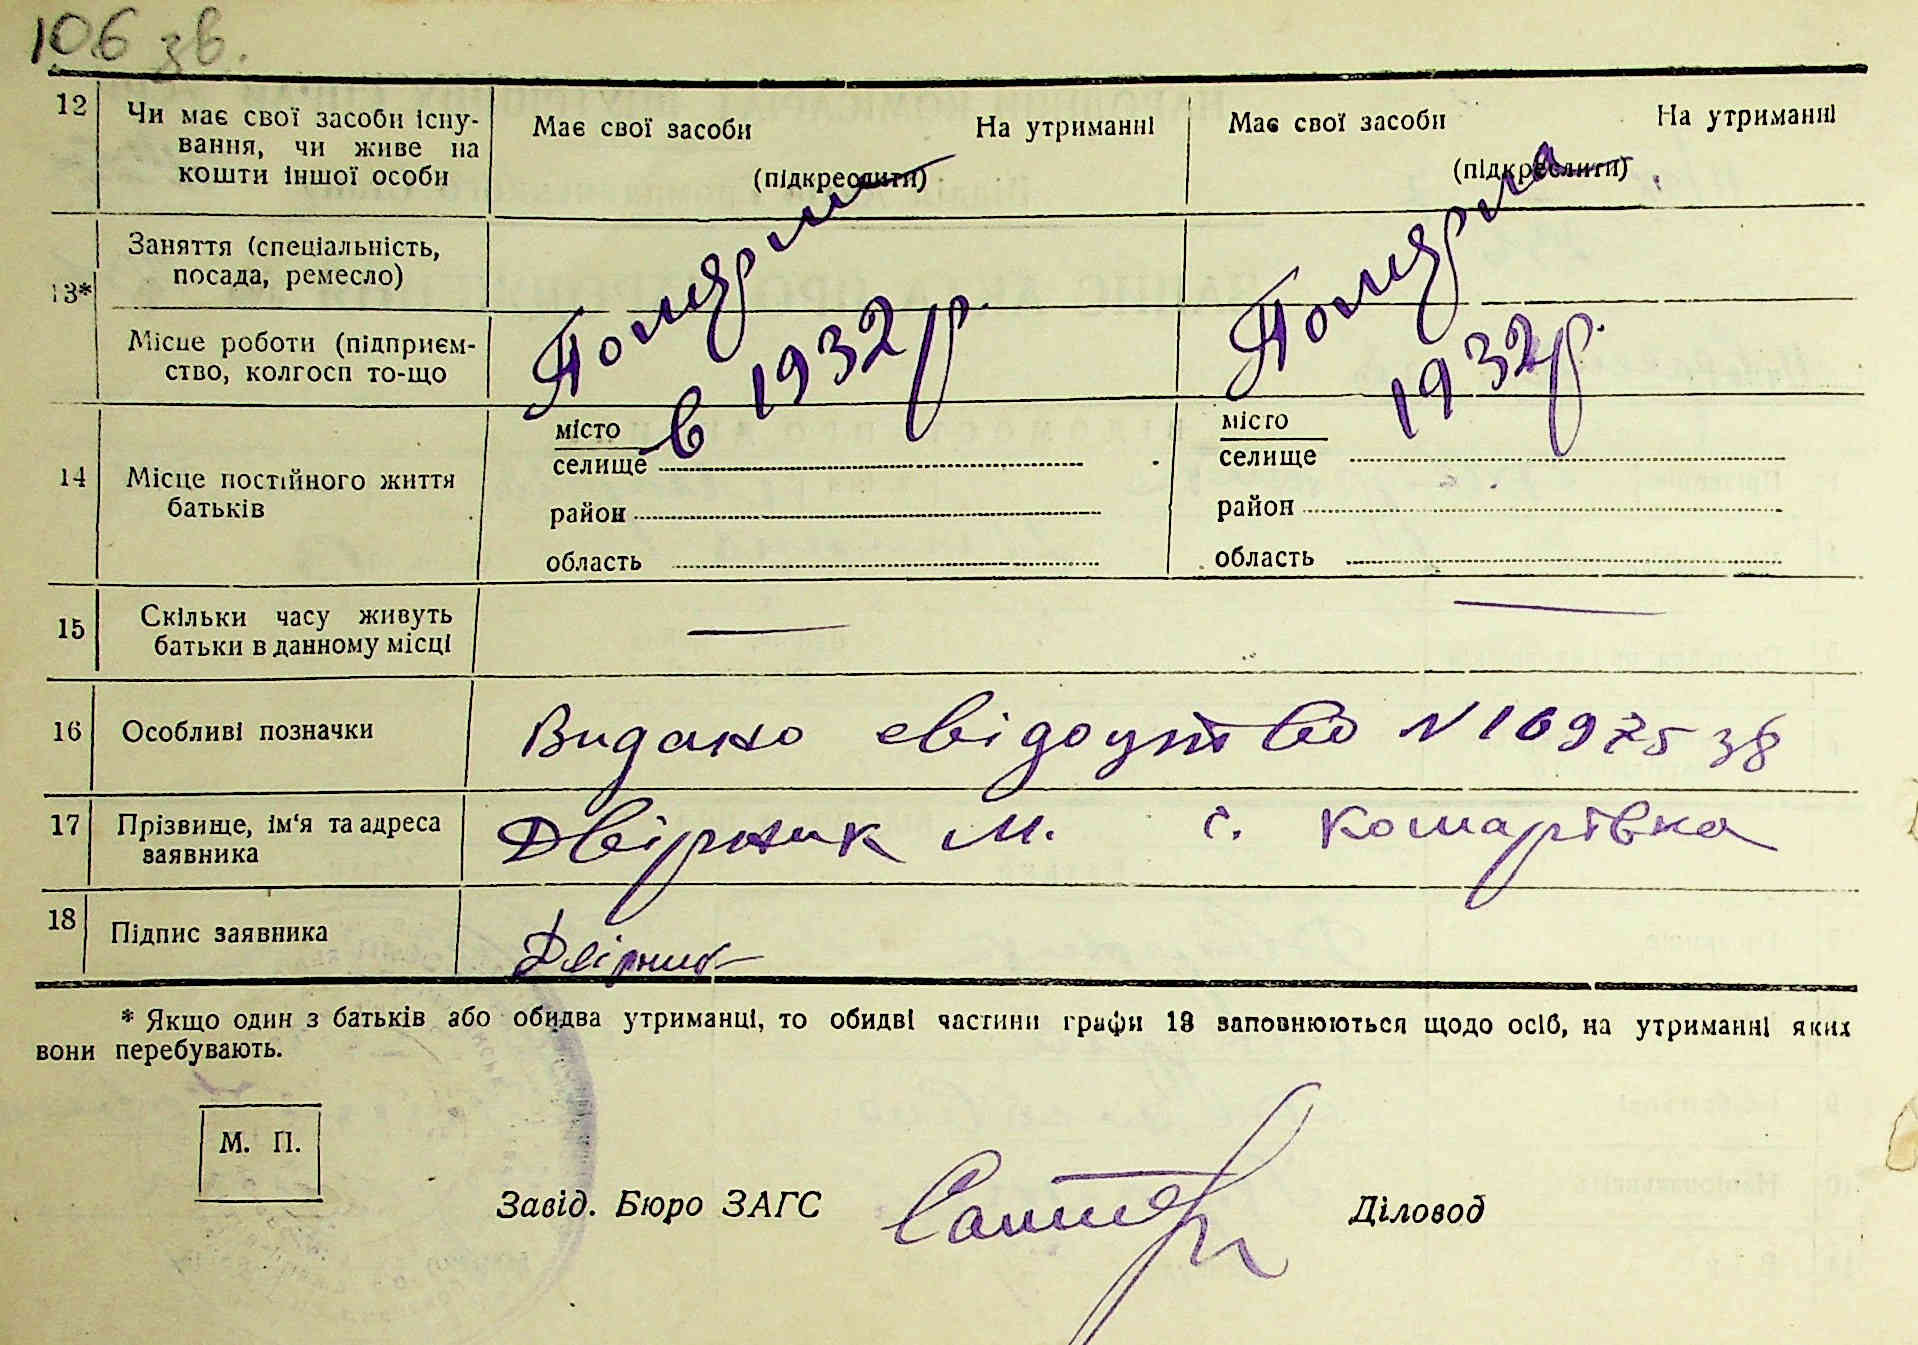 106 зв.
12 Чи має свої засоби існу-
вання, чи живе на
кошти іншої особи
Має свої засоби На утриманні
(підкреслити)
Має свої засоби На утриманні
(підкреслити)
13* Заняття (спеціальність,
посада, ремесло)
Місце роботи (підприєм-
ство, колгосп то-що
в 1932 р.
Померла
1932 р.
14 Місце постійного життя
батьків
місто
селище
район
область
місто
селище
район
область
15 Скільки часу живуть
батьки в данному місці
16 Особливі позначки
Видано свідоцтво N 1697538
17 Прізвище, ім'я та адреса
заявника
Двірник М. с. Комарівка
18 Підпис заявника
Двірник
* Якщо один з батьків або обидва утриманці, то обидві частини графи 13 заповнюються щодо осіб, на утриманні яких
вони перебувають.
М. П.
Завід. Бюро ЗАГС Діловод